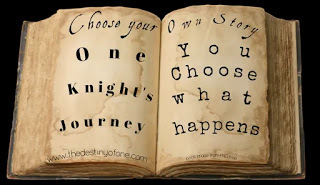 Choose your Own Story
One
Knight's
Journey
www.thedestinyofone.com
You
Choose
what
happens